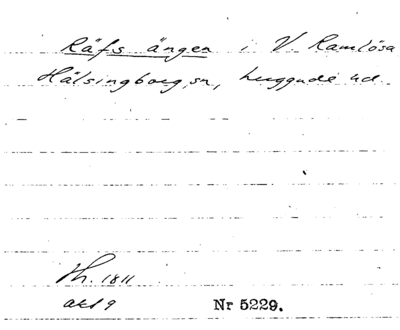 Räfs ängen i V. Ramlösa
Hälsingborg sn, Luggude hd.
Th. 1811
akt 9 Nr 5229.